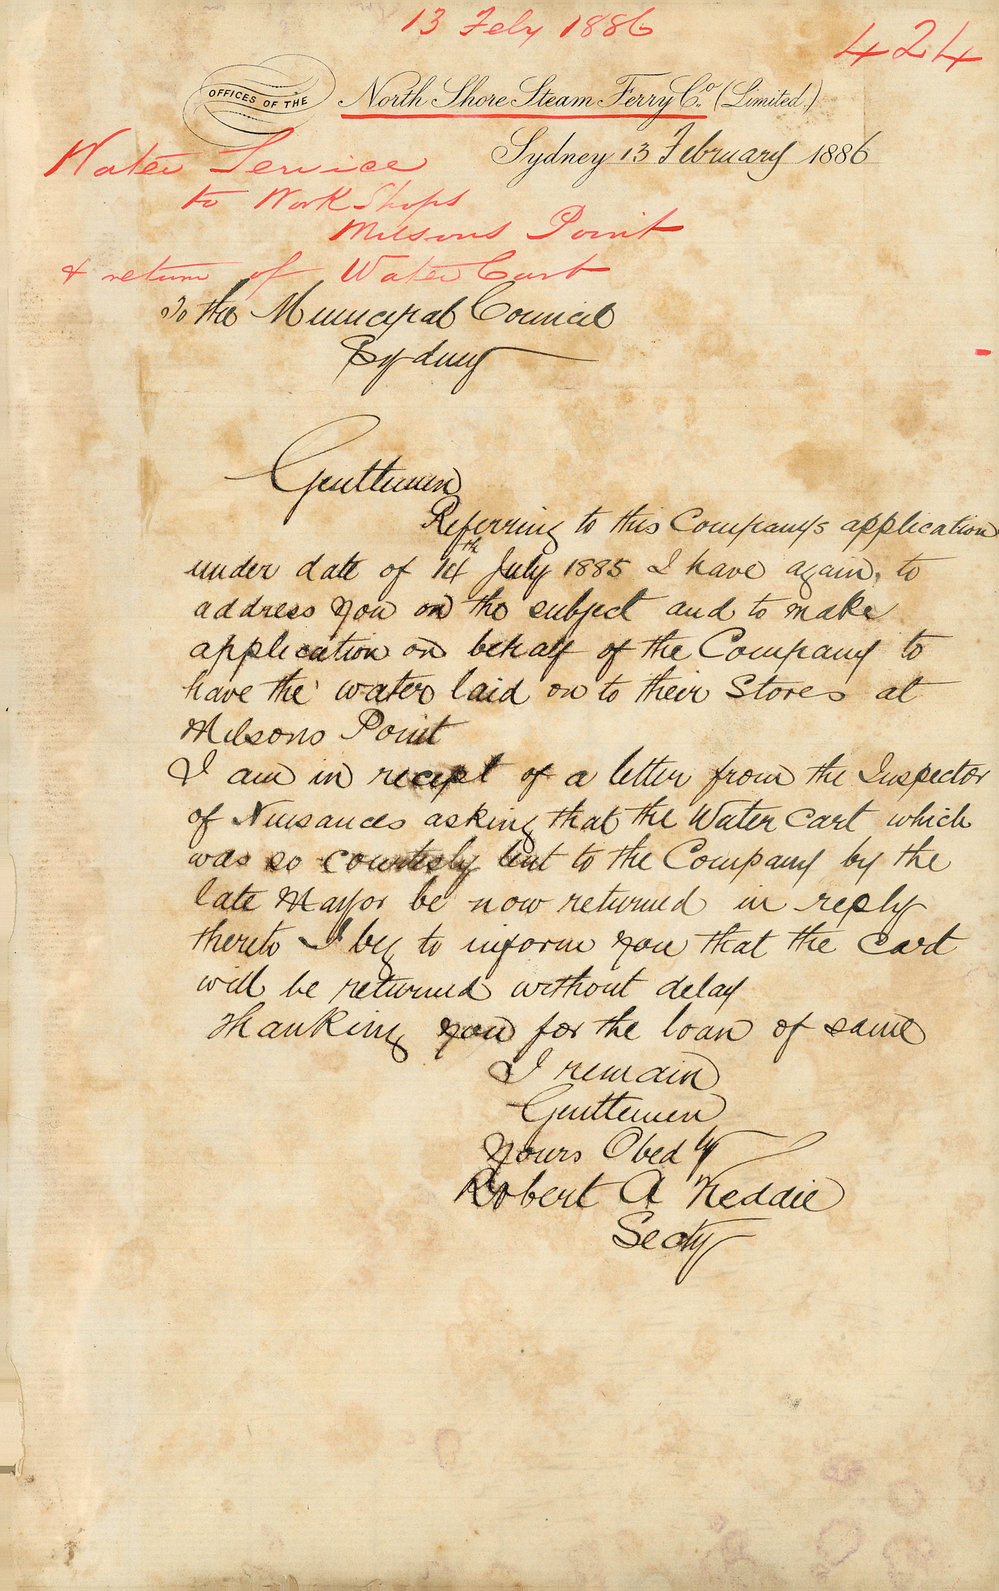 13 Feby 1886
424
OFFICES OF THE North Shore Steam Ferry Co. (Limited.)
Sydney 13 February 1886
Water Service
to Work Shops
Milsons Point
& return of Water Cart
To the Municipal Council
Sydney
Gentlemen
Referring to this Companys application
under date of 14th July 1885 I have again, to
address you on the subject and to make
application on behalf of the Company to
have the water laid on to their Stores at
Milsons Point
I am in receipt of a letter from the Inspector
of Nuisances asking that the Water Cart which
was so courtesly lent to the Company by the
late Mayor be now returned in reply
thereto I beg to inform you that the Cart
will be returned without delay
Thanking you for the loan of same
I remain
Gentlemen
Yours Obedly
Robert A Keddie
Secty